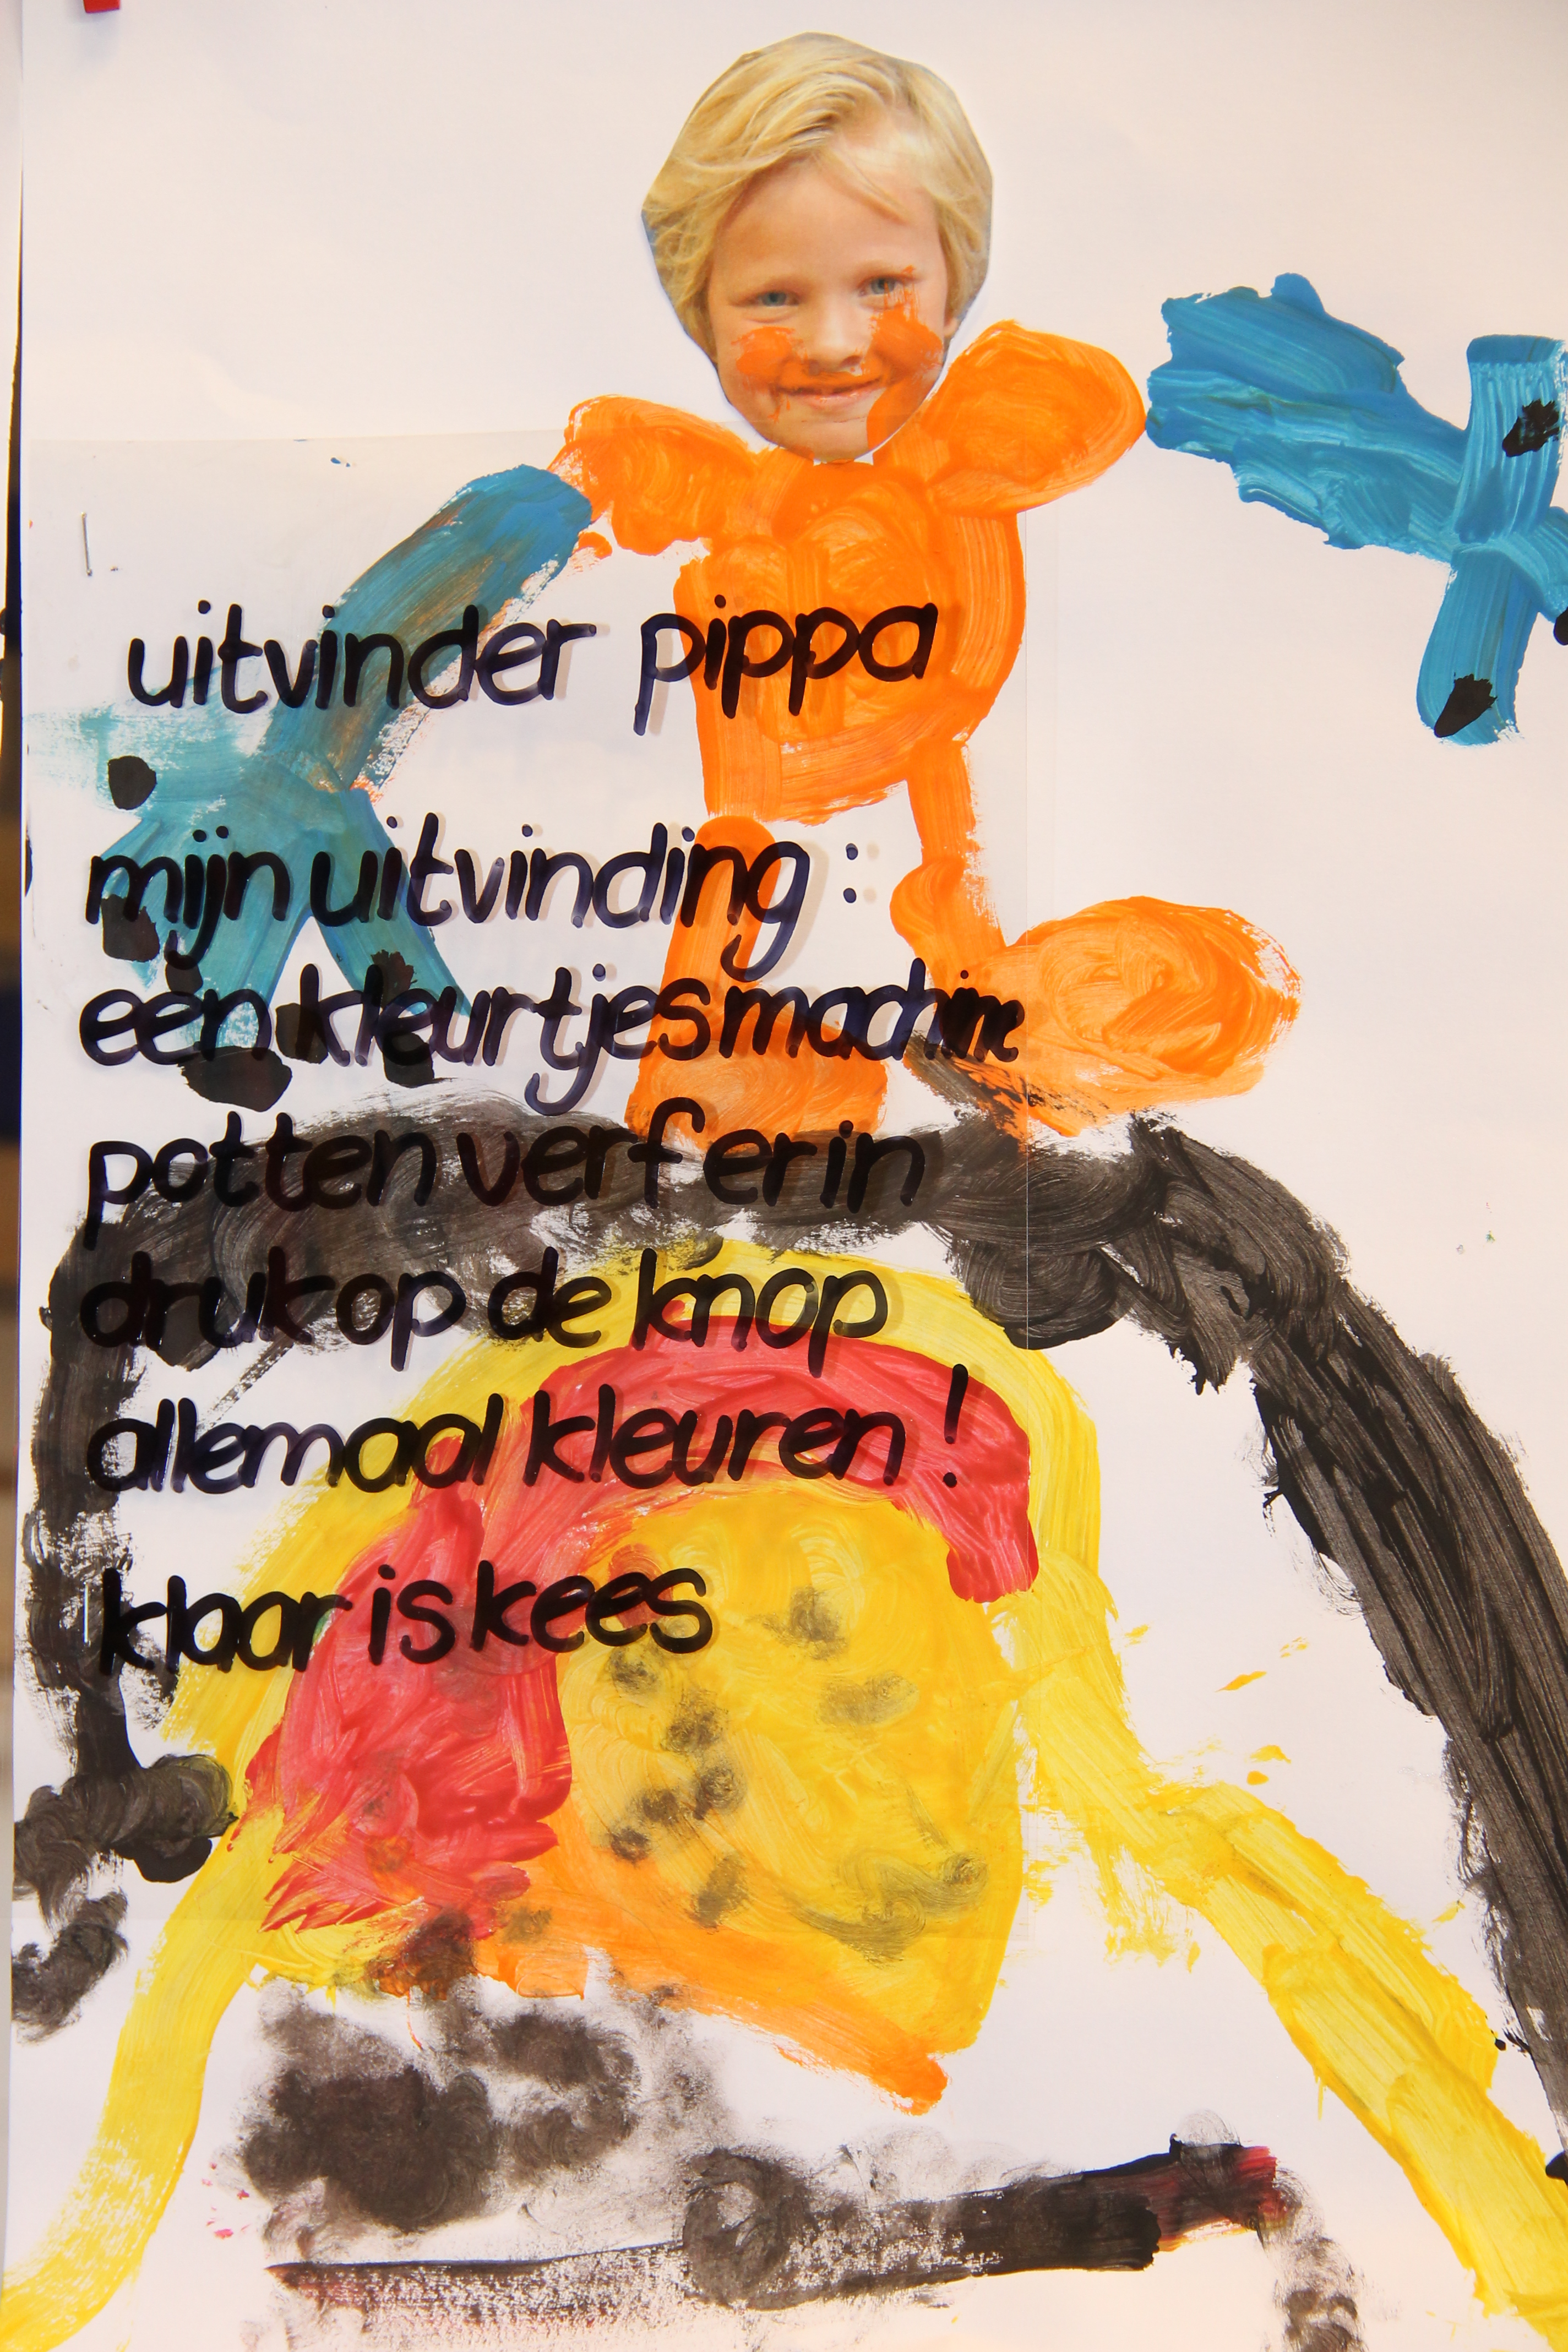 uitvinder pippa
mijn uitvinding :
een kleurtjesmachine
potten verf erin
druk op de knop
allemaal kleuren !
klaar is kees